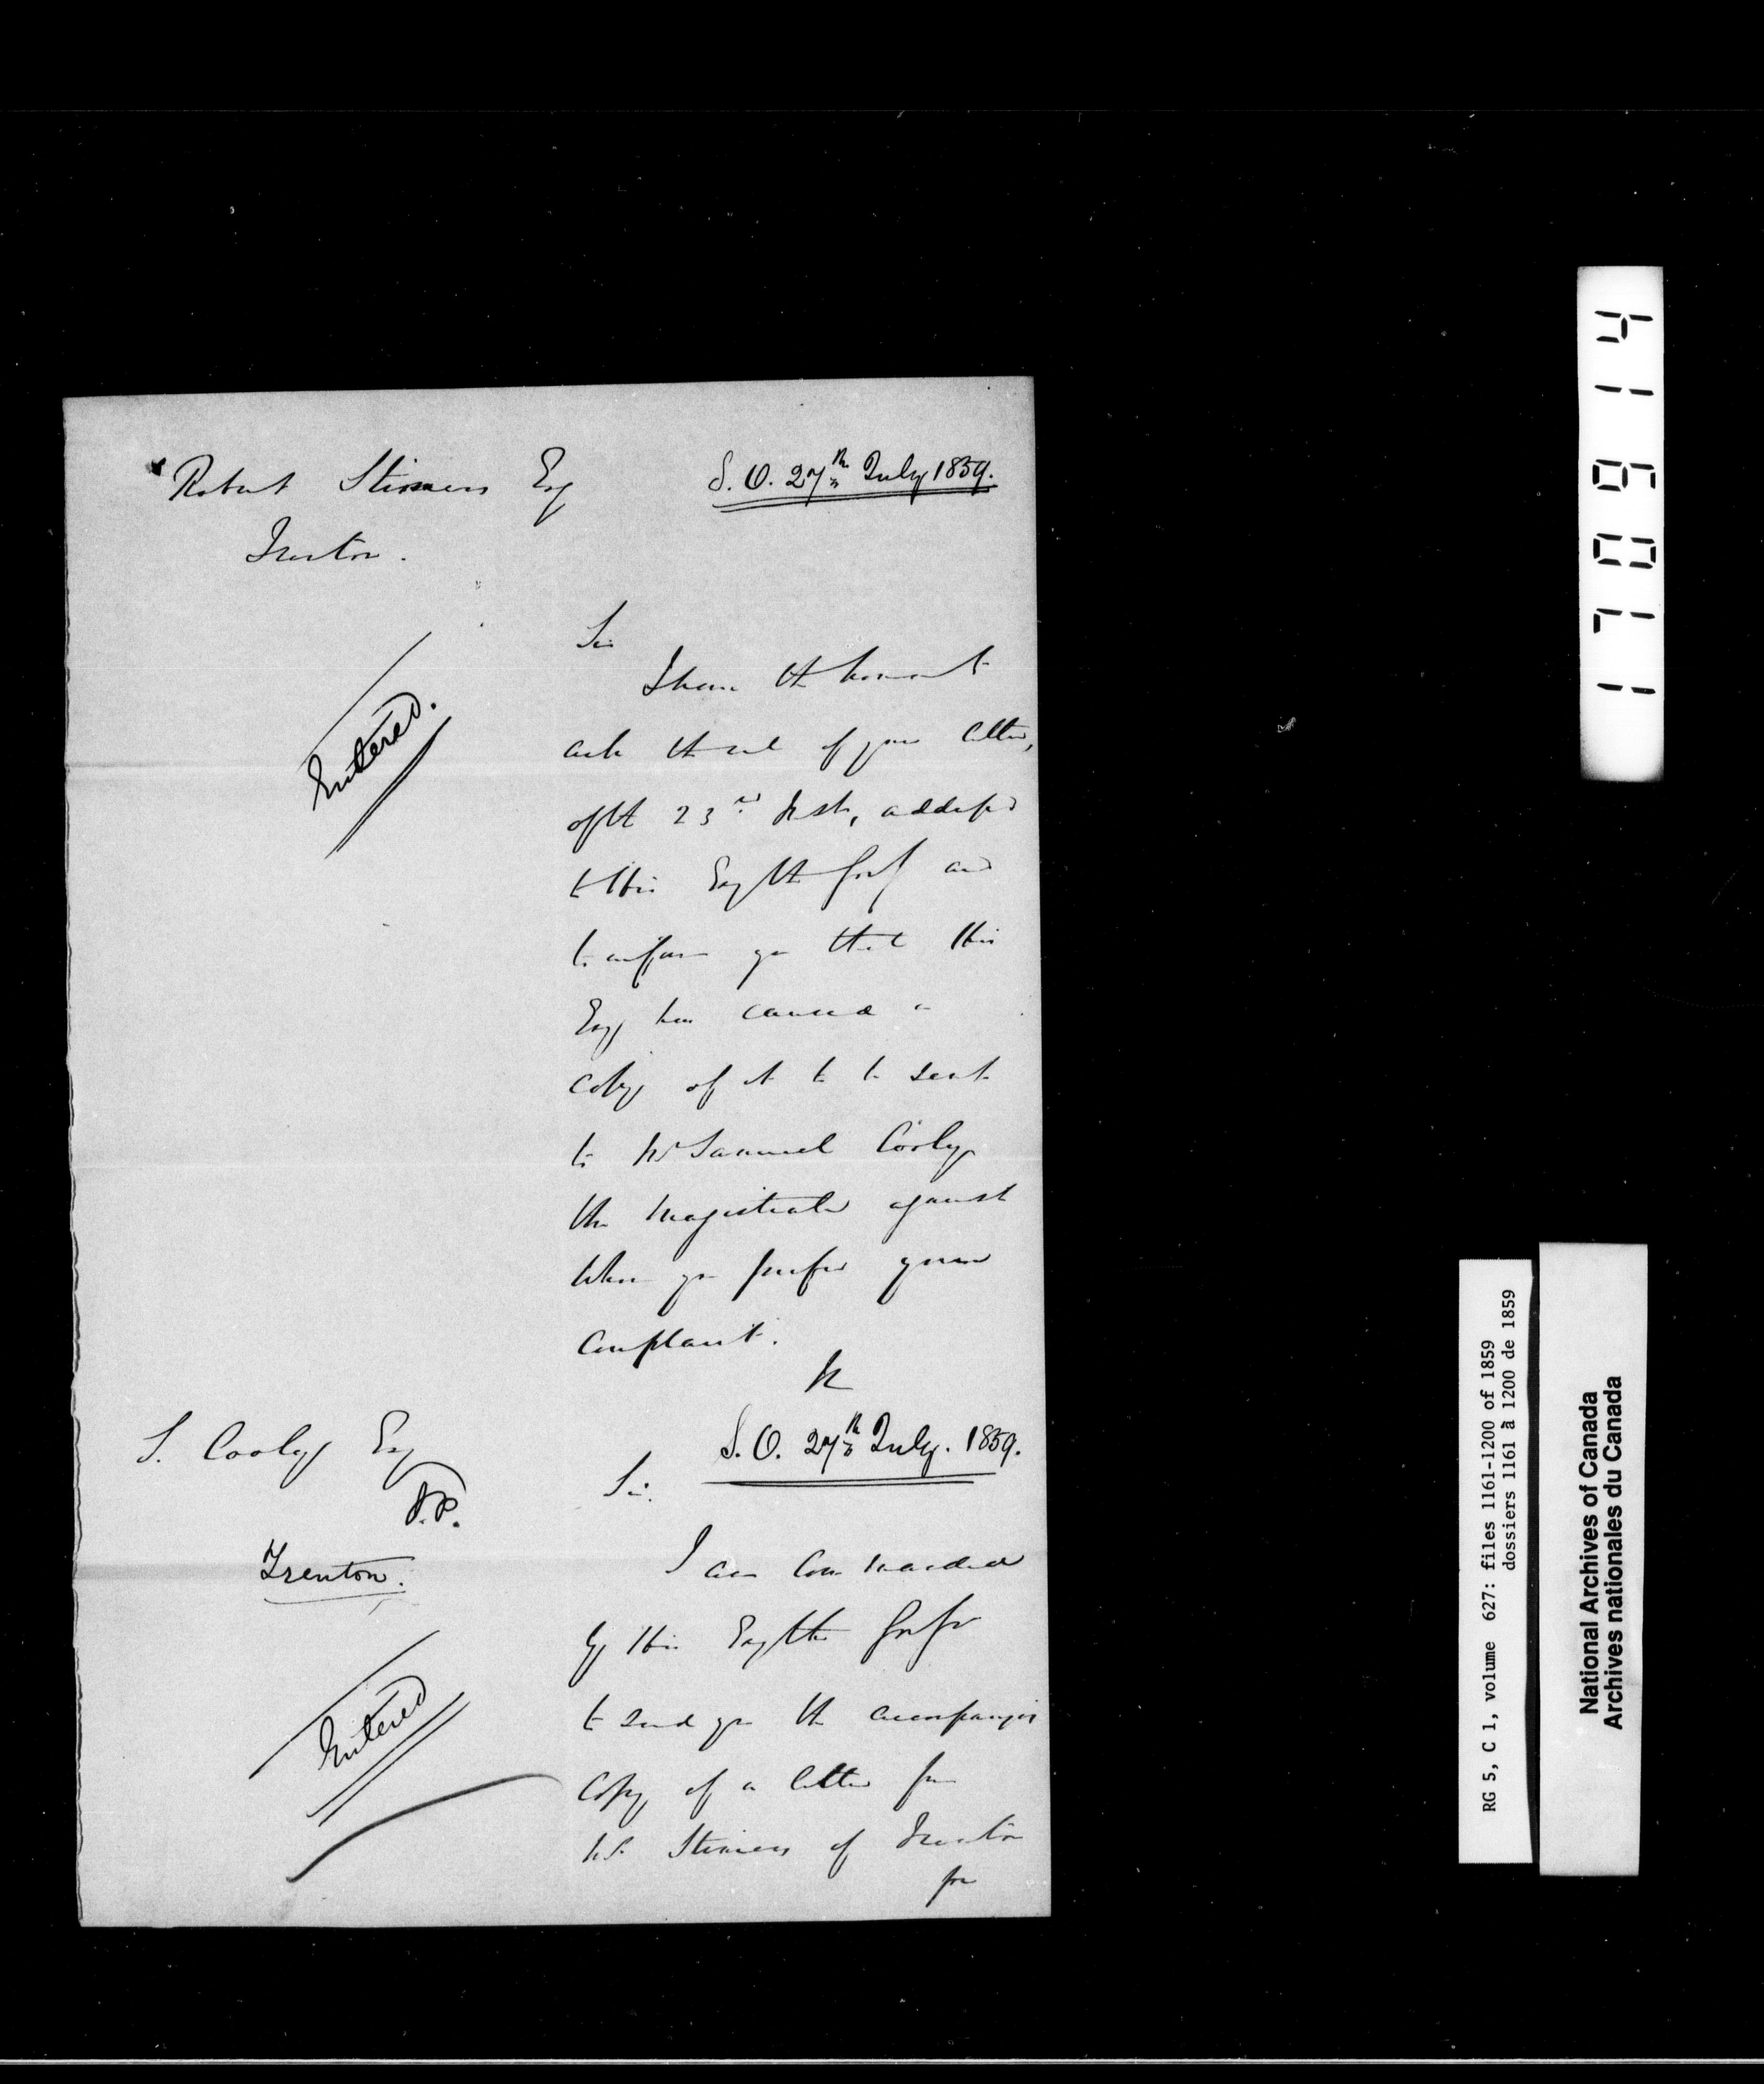 Robert Stimers Esq
S. O. 27th July 1859.
Trenton.
Sir
I have the honor to
ack the rect of your letter,
of the 23rd Inst, addressed
to His Exy the Gov and
to inform you that His
Exy has caused a
copy of it to be sent
to Mr Samuel Cooley
the Magistrate against
whom you prefer your
complaint.
S. Cooley Esq
J.P.
Trenton.
Entered.
S. O. 27th July. 1859.
Sir.
I am commanded
by His Exy the
to send you the accompanying
copy of a letter from
Mr Stimers of Trenton
Entered
4
1
6
0
7
1
RG 5, C 1, volume 627: files 1161-1200 of 1859
dossiers 1161 à 1200 de 1859
National Archives of Canada
Archives nationales du Canada